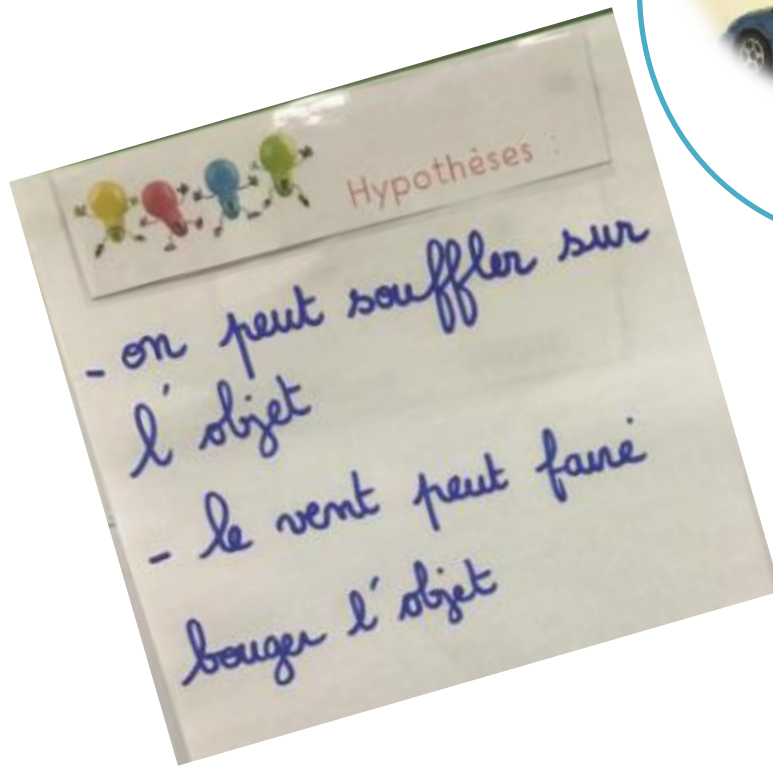 Hypothèses :
- on peut souffler sur
l'objet
- le vent peut faire
bouger l'objet